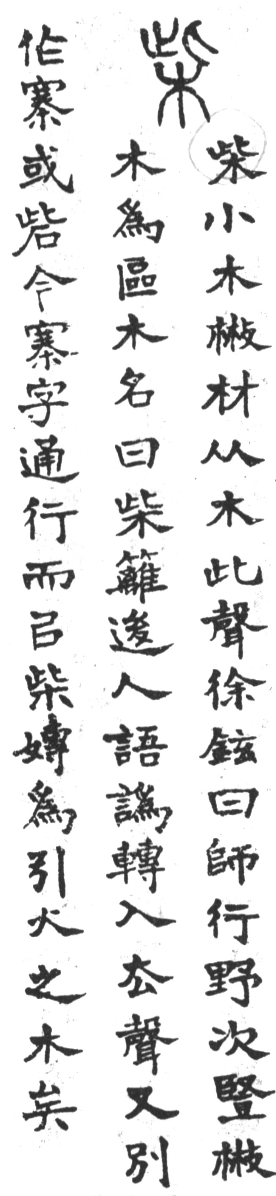 柴
柴小木㪔材从木此聲徐鉉曰師行野次豎㪔
木爲區木名曰柴籬後人語譌轉入厺聲又別
作寨或砦今寨字通行而㠯柴專爲引火之木矣